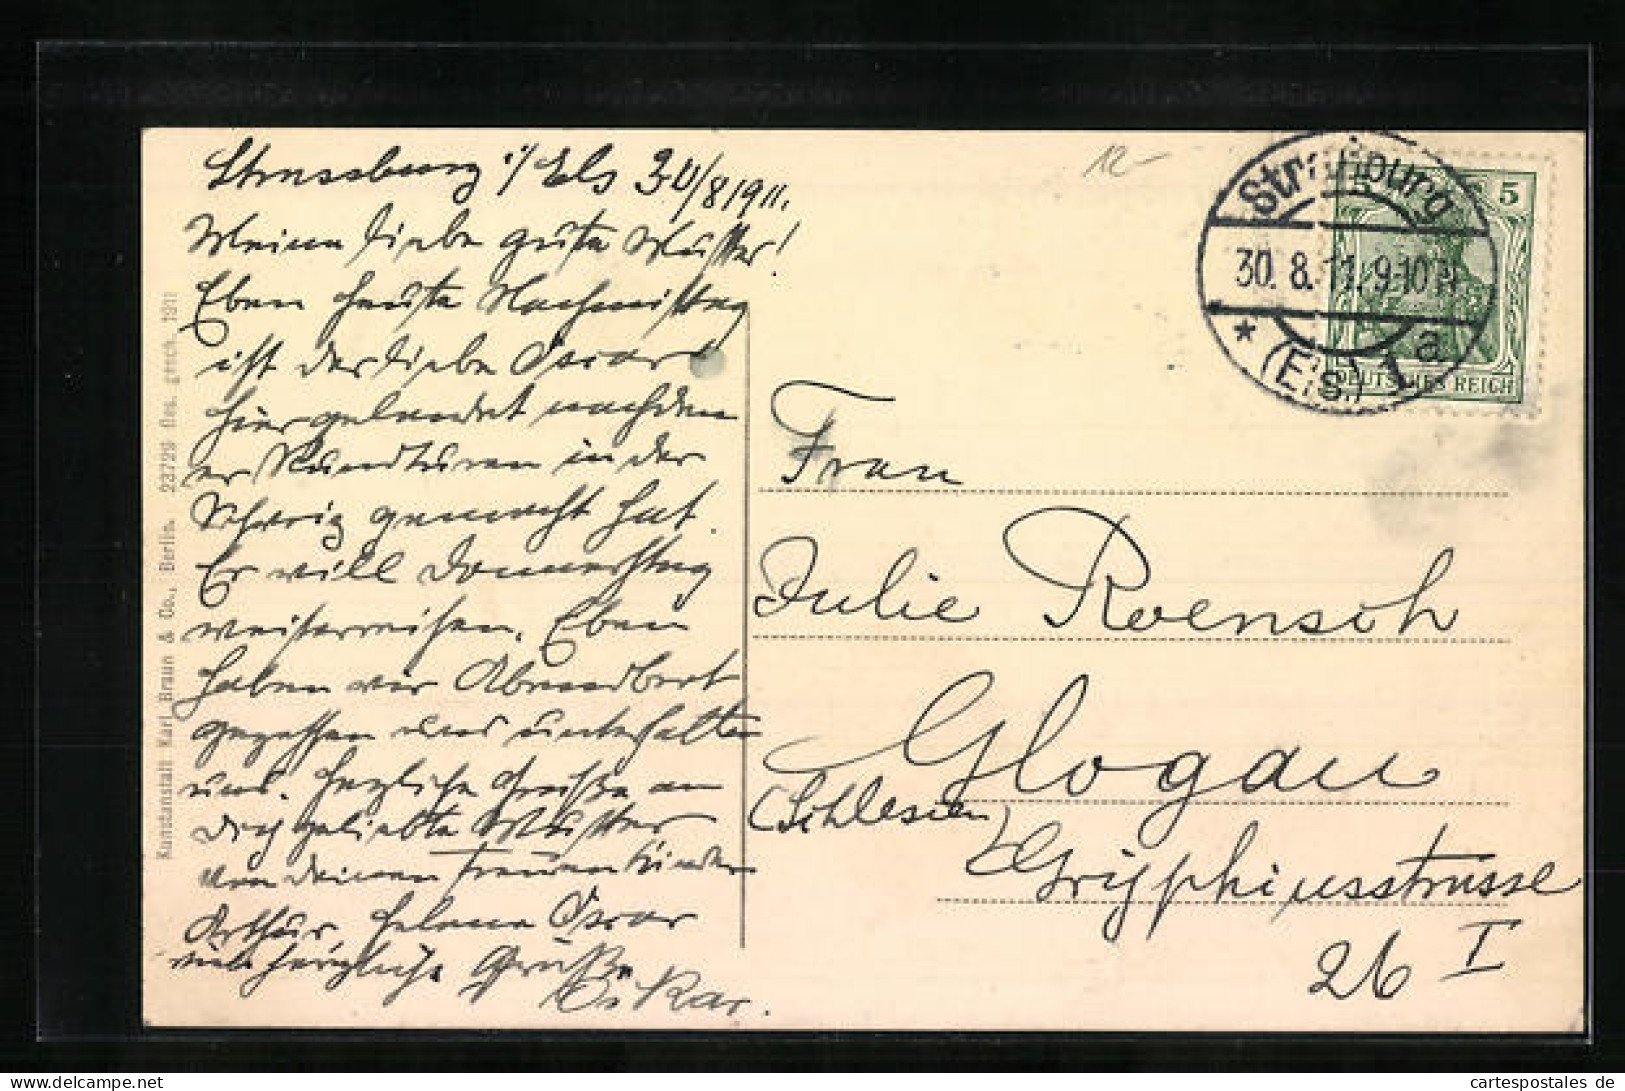 Strassburg i/Els 30/8 1911.
Meine liebe gute Mutter!
Eben heute Nachmittag
ist der liebe Oscar
hier gelandet nachdem
er Rundturen in der
Schweiz gemacht hat.
Er will Donnerstag
weiterreisen. Eben
haben wir Abendbrot
gegessen und unterhalten
uns. Herzliche Grüße an
Dich geliebte Mutter
von deinen treuen Kindern
Arthur Helene Oscar
viele herzliche Grüße
Oskar.
Kunstanstalt Karl Braun & Co., Berlin. 22729 Ges. gesch. 1911
12-
Straßburg
30. 8. 11. 9-10 N
* (Els.) 1 a
5
DEUTSCHES REICH
Frau
Julie Roensch
Glogau
(Schlesien)
Gryphiusstrasse
26 I
cartespostales de
https://www.delcampe.net